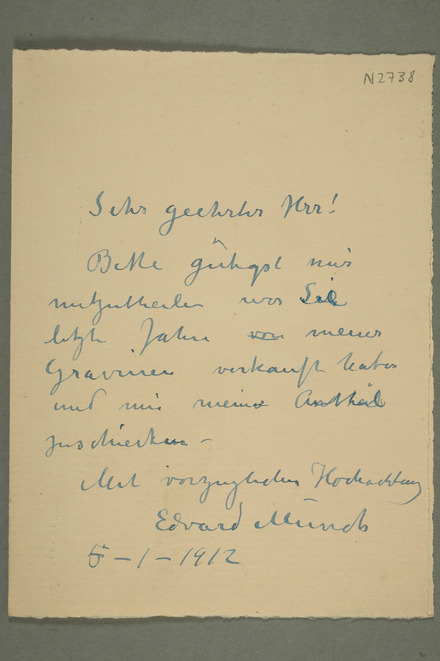 N2738
Sehr geehrter Herr!
Bitte gütigst mir
mitzutheilen was Sie
letzte Jahre von meiner
Gravuren verkauft haben
und mir meine Antheil
zuschicken –
Mit vorzüglichen Hochachtung
Edvard Munch
5 – 1 – 1912